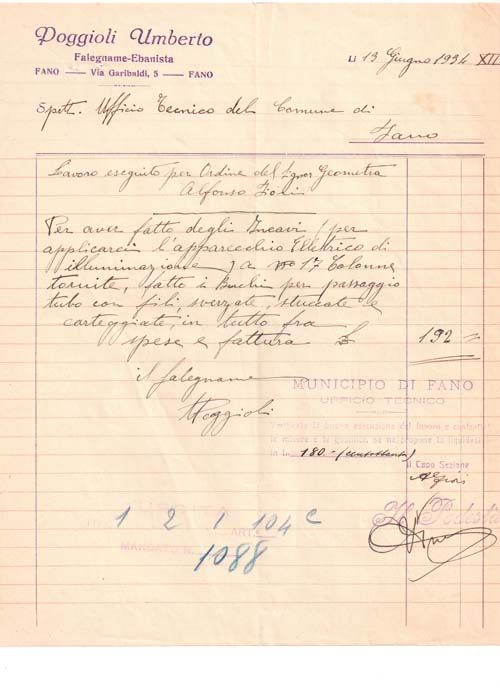 Poggioli Umberto
Falegname-Ebanista
FANO — Via Garibaldi, 5 — FANO
Li 13 Giugno 1934 XII
Spett. Ufficio Tecnico del Comune di
Fano
Lavoro eseguito per Ordine del Signor Geometra
Alfonso
Per aver fatto degli Incavi (per
applicarci l'apparecchio Elettrico di
illuminazione) a No 17 Colonne
tornite, fatto i Buchi per passaggio
tubo con fili, sverzate, stuccate e
carteggiate, in tutto fra
spese e fattura £ 192 =
il falegname
Poggioli
MUNICIPIO DI FANO
UFFICIO TECNICO
Verificata la buona esecuzione del lavoro, e controllate
le misure e le quantità, se ne propone la liquidazi
in L. 180.- (centottanta)
Il Capo Sezione
Il Podestà
1 2 1 104 c
ART.
MANDATO N.
1088